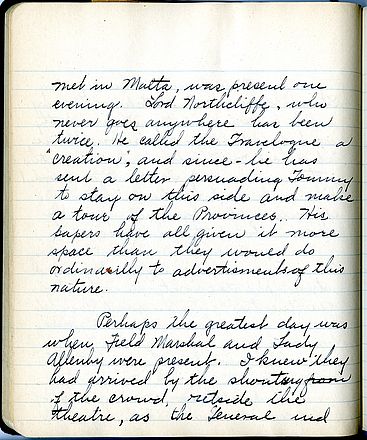 met in Malta, was present one
evening. Lord Northcliffe, who
never goes anywhere has been
twice. He called the Travelogue a
"creation", and since - he has
sent a letter persuading Tommy
to stay on this side and make
a tour of the Provinces. His
papers have all given it more
space than they would do
ordinarily to advertisments of this
nature.
Perhaps the greatest day was
when Field Marshal and Lady
Allenby were present. I knew they
had arrived by the shouting from
of the crowd, outside the
theatre, as the General and